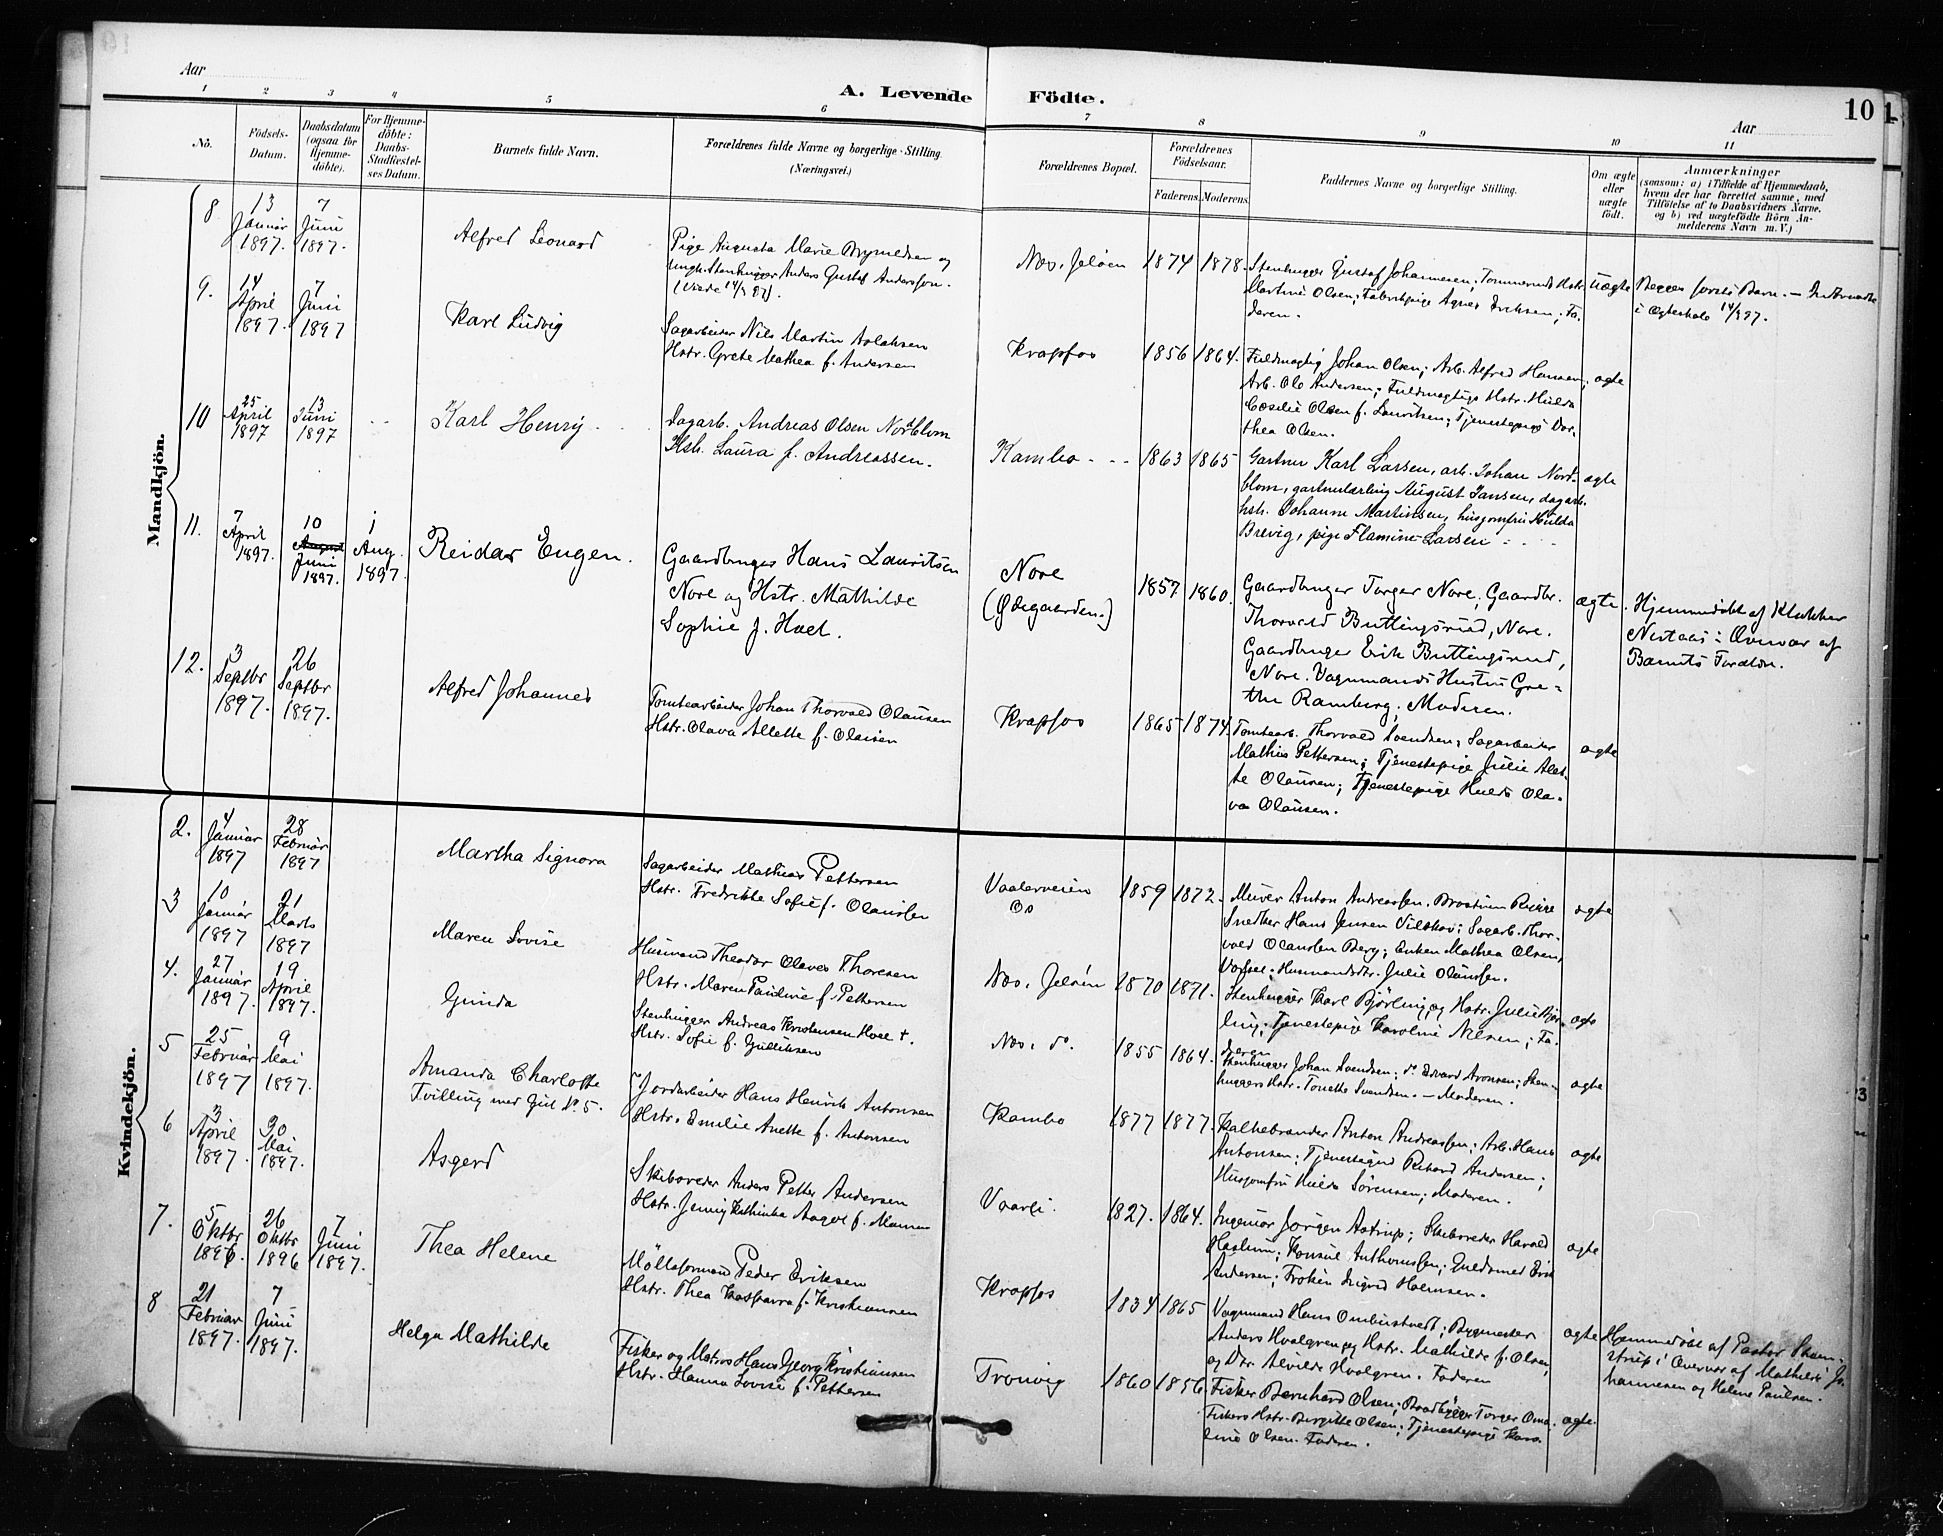 10
Aar
A. Levende Födte.
Aar
1 2 3 4 5 6 7 8 9 10 11
No.
Födsels-
Datum.
Daabsdatum
(ogsaa for
Hjemme-
döbte).
For Hjemme-
döbte:
Daabs-
Stadfæstel-
ses Datum.
Barnets fulde Navn.
Forældrenes fulde Navne og borgerlige Stilling.
(Næringsvei.)
Forældrenes Bopæl.
Forældrenes
Födselsaar.
Faderens.
Moderens.
Faddernes Navne og borgerlige Stilling.
Om ægte
eller
uægte
födt.
Anmærkninger
(saasom: a) i Tilfælde af Hjemmedaab,
hvem der har forrettet samme, med
Tilföielse af to Daabsvidners Navne.
og b) ved uægtefödte Börn An-
melderens Navn m. V.)
Mandkjön.
8
13
Januar
1897.
7
Juni
1897.
Alfred Leonard
Pige Augusta Marie Brynildsen og
ungk. Stenhugger Anders Gustaf Andersson.
(Viede 14/3 97).
Nes, Jeløen
1874
1878.
Stenhugger Gustaf Johannesen; Tømmermds Hstr.
Martine Olsen; Fabrikpige Agnes Eriksen; Fa-
deren.
Uægte
Begges første Barn. — Indtraadte
i Ægteskab 14/3 97.
9.
14
April
1897.
7
Juni
1897
Karl Ludvig
Sagarbeider Nils Martin Aslaksen
Hstr. Grete Mathea f. Andersen
Krapfos
1856
1864.
Fuldmægtig Johan Olsen; Arb. Alfred Hansen;
Arb. Ole Andersen; Fuldmægtigs Hstr. Hulda
Cæselie Olsen f. Lauritsen; Tjenestepige Dor-
thea Olsen.
ægte
10
25
April
1897
13
Juni
1897
Karl Henry
Dagarb. Andreas Olsen Nordblom
Hstr. Laura f. Andreassen.
Kambo
1863
1865
Gartner Karl Larsen, arb. Johan Nord-
blom, gartnerlærling August Jansen, dagarb.
hstr. Johanne Martinsen, husjomfru Hulda
Brevig, pige Flamine Larsen
ægte
11.
7
April
1897.
10
August
Juni
1897.
1
Aug.
1897.
Reidar Eugen.
Gaardbruger Hans Lauritsen
Nore og Hstr. Mathilde
Sophie f. Hoel.
Nore
(Ødegaarden.)
1857
1860.
Gaardbruger Torger Nore, Gaardbr.
Thorvald Buttingsrud, Nore.
Gaardbruger Erik Buttingsrud,
Nore. Vognmands Hustru Gre-
the Ramberg, Moderen.
ægte.
Hjemmedøbt af Klokker
Nestaas i Overvær af
Barnets Forældre.
12.
3
Septbr
1897.
26
Septbr
1897.
Alfred Johannes
Tomtearbeider Johan Thorvald Olausen
Hstr. Olava Alette f. Olausen
Krapfos
1865
1874.
Tomtearb. Thorvald Svendsen; Sagarbeider
Mathias Pettersen; Tjenestepige Julie Alet-
te Olausen; Tjenestepige Hulda Ola-
va Olausen.
ægte
Kvindekjön.
2.
4
Januar
1897
28
Februar
1897
Martha Signora
Sagarbeider Mathias Pettersen
Hstr. Fredrikke Sofie f. Olaussen
Vaalerveien
1859
1872.
Murer Anton Andreassen,
Snedker Hans Jensen
vald Olaussen Berg; Enken Mathea Olsen,
Julie Olaussen.
ægte
3
10
Januar
1897
21
Marts
1897
Maren Lovise
Husmand Theodor Olaves Thoresen
Hstr. Maren Pauline f. Pettersen
Nes, Jeløen
1870
1871.
Stenhugger Karl Bjørling og Hstr. Julie Bjør-
ling; Tjenestepige Karoline Nilsen; Fa-
deren
ægte
4.
27
Januar
1897.
19
April
1897.
Gunda
Stenhugger Andreas Kristensen Hoel +.
Hstr. Sofie f. Gulliksen
Nes, do.
1855
1864.
Stenhugger Johan Svendsen; do Edvard Aronsen; Sten-
huggers Hstr. Tonette Svendsen. — Moderen.
ægte
5
25
Februar
1897
9
Mai
1897.
Amanda Charlotte
Tvilling med Gut No 5.
Jordarbeider Hans Henrik Antonsen
Hstr. Emilie Anette f. Antonsen
Kambo
1877
1877.
Kalkebrænder Anton Andreassen; Arb. Hans
Antonsen; Rikard Andersen;
Husjomfru Hulda Sørensen; Moderen.
ægte
6
3
April
1897.
30
Mai
1897.
Asgerd
Skibsreder Anders Petter Andersen
Hstr. Jenny Kathinka Aagot f.
Vaarli.
1827.
1864.
Ingeniør Jørgen Astrup; Skibsreder Harald
Konsul Anthonisen; Guldsmed Erik
Andersen; Frøken Ingrid Holmsen.
ægte
7.
5
Oktbr
1896.
26
Oktbr
1896
7
Juni
1897.
Thea Helene
Mølleformand Peder Eriksen
Hstr. Thea Kasparra f. Kristiansen
Krapfos
1834
1865
Vognmand Hans Ombustvedt; Bygmester
Anders Hvalgren og Hstr. Mathilde f. Olsen,
og Dtr. Alvilde Hvalgren. Faderen
ægte
Hjemmedøbt af Pastor
i Overvær af Mathilde Jo-
hannesen og Helene Paulsen.
8
21
Februar
1897.
7
Juni
1897.
Helga Mathilde
Fisker og Matros Hans Georg Kristiansen
Hstr. Hanna Lovise f. Pettersen
Tronvig
1860
1856
Fisker Bernhard Olsen; Baadbygger Torger
Fiskers Hstr. Birgitte Olsen; Tjenestepige Karo-
line Olsen. Faderen.
ægte.